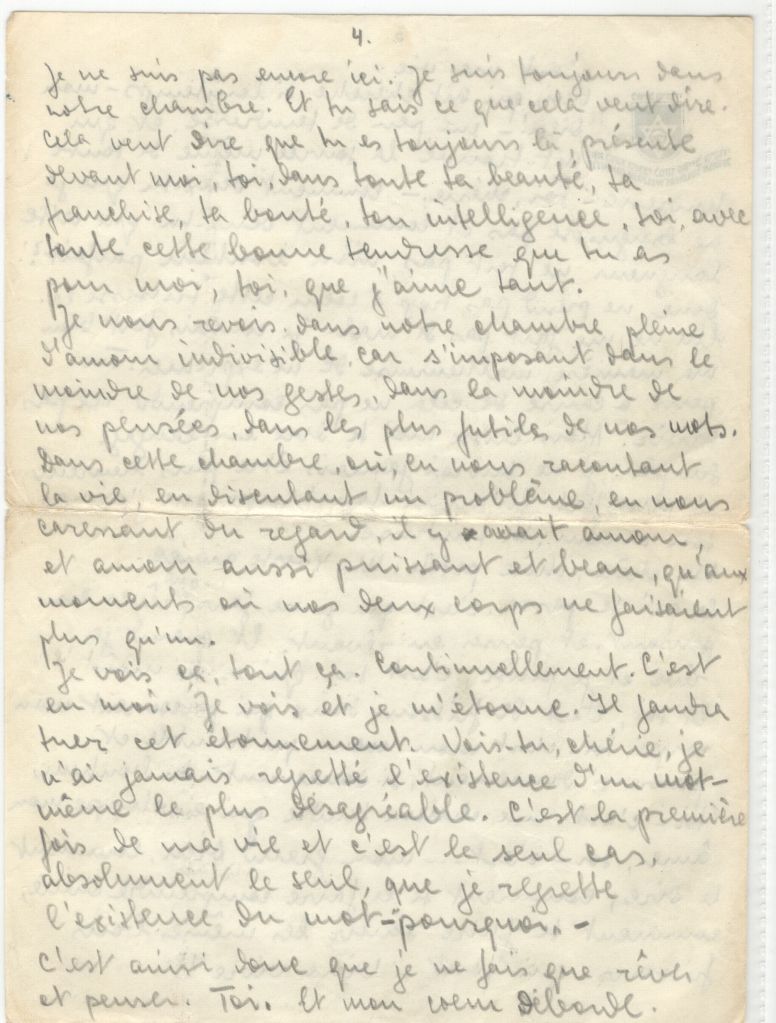 4.
Je ne suis pas encore ici. Je suis toujours dans
notre chambre. Et tu sais ce que cela veut dire.
Cela veut dire que tu es toujours là, présente
devant moi, toi, dans toute ta beauté, ta
franchise, ta bonté, ton intelligence, toi, avec
toute cette bonne tendresse que tu as
pour moi, toi, que j'aime tant.
Je nous revois dans notre chambre pleine
d'amour indivisible, car s'imposant dans le
moindre de nos gestes, dans la moindre de
nos pensées, dans les plus futiles de nos mots.
Dans cette chambre, où, en nous racontant
la vie, en discutant un problème, en nous
caressant du regard, il y avait amour,
et amour aussi puissant et beau, qu'aux
moments où nos deux corps ne faisaient
plus qu'un.
Je vois ça, tout ça. Continuellement. C'est
en moi. Je vois et je m'étonne. Il faudra
tuer cet étonnement. Vois-tu, chérie, je
n'ai jamais regretté l'existence d'un mot-
même le plus desagréable. C'est la première
fois de ma vie et c'est le seul cas,
absolument le seul, que je regrette
l'existence du mot-pourquoi. -
C'est ainsi donc que je ne fais que rêver
et penser. Toi. Et mon coeur déborde.